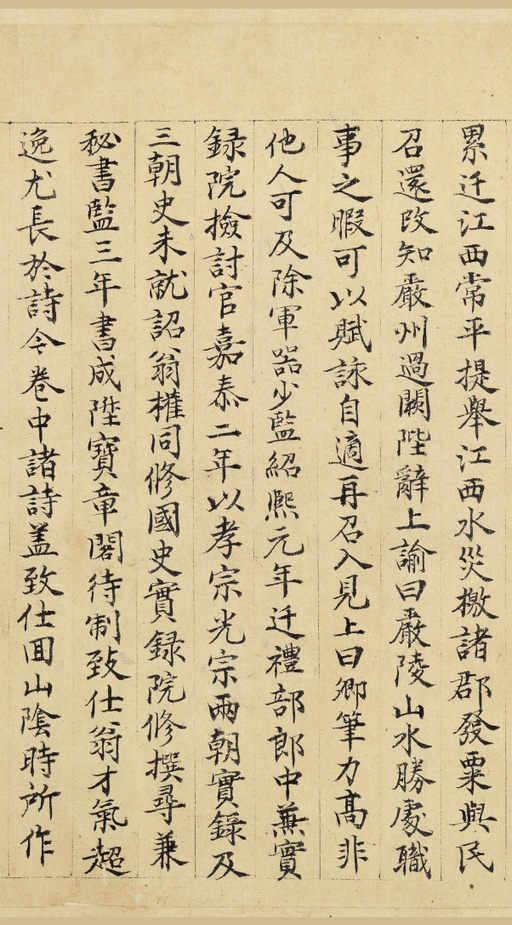 累迁江西常平提舉江西水災撽諸郡發粟與民
召還改知嚴州過闕陛辭上諭曰嚴陵山水勝處職
事之暇可以賦詠自適再召入見上曰卿筆力高非
他人可及除軍器少監紹熙元年迁禮部郎中兼實
録院撿討官嘉泰二年以孝宗光宗兩朝實錄及
三朝史未就詔翁權同修國史實録院修撰尋兼
秘書監三年書成陞寶章閣待制致仕翁才氣超
逸尤長於詩今卷中諸詩盖致仕囬山陰時所作